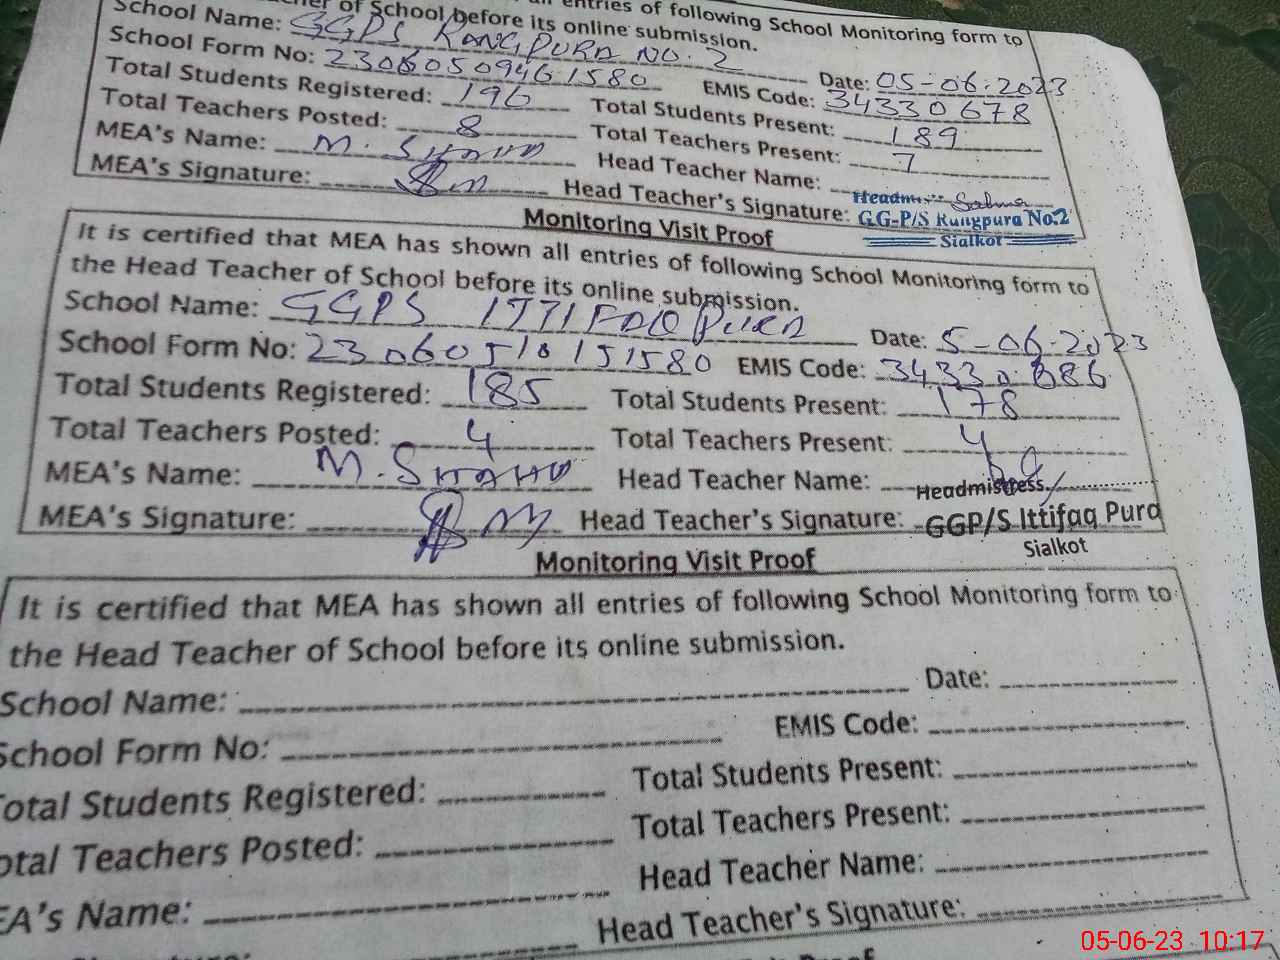 of School before its online submission.
entries of following School Monitoring form to
School Name: GGPS RANGPURA NO. 2
Date: 05-06.2023
School Form No: 23060509461580
EMIS Code: 34330678
Total Students Registered: 196
Total Students Present: 189
Total Teachers Posted: 8
Total Teachers Present: 7
MEA's Name: M.
Head Teacher Name:
MEA's Signature:
Head Teacher's Signature: Salma
GG-P/S Rangpura No.2
Sialkot
Monitoring Visit Proof
It is certified that MEA has shown all entries of following School Monitoring form to
the Head Teacher of School before its online submission.
School Name: GGPS ITTIFAQ PURA
Date: 5-06-2023
School Form No: 23060510151580
EMIS Code: 34330686
Total Students Registered: 185
Total Students Present: 178
Total Teachers Posted: 4
Total Teachers Present: 4
MEA's Name: M.
Head Teacher Name:
Headmistress
MEA's Signature:
Head Teacher's Signature: GGP/S Ittifaq Pura
Sialkot
Monitoring Visit Proof
It is certified that MEA has shown all entries of following School Monitoring form to
the Head Teacher of School before its online submission.
School Name:
Date:
School Form No:
EMIS Code:
Total Students Registered:
Total Students Present:
Total Teachers Posted:
Total Teachers Present:
MEA's Name:
Head Teacher Name:
Head Teacher's Signature:
05-06-23 10:17